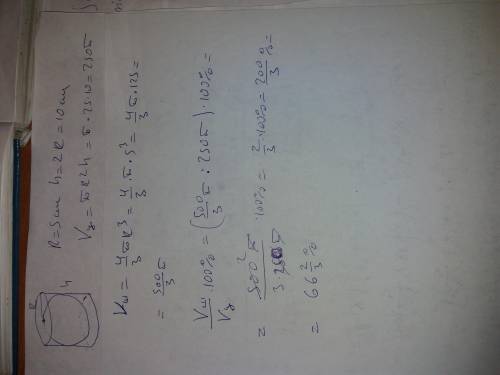 R
h
R=5см h=2R=10см
Vц=πR²h=π·25·10=250π
Vш = 4/3 πR³ = 4/3·π·5³ = 4/3 π·125 =
= 500/3 π
Vш/Vц ·100% = (500/3 π : 250π)·100% =
= 500² π / 3·250π ·100% = 2/3·100% = 200/3 % =
= 66 2/3 %